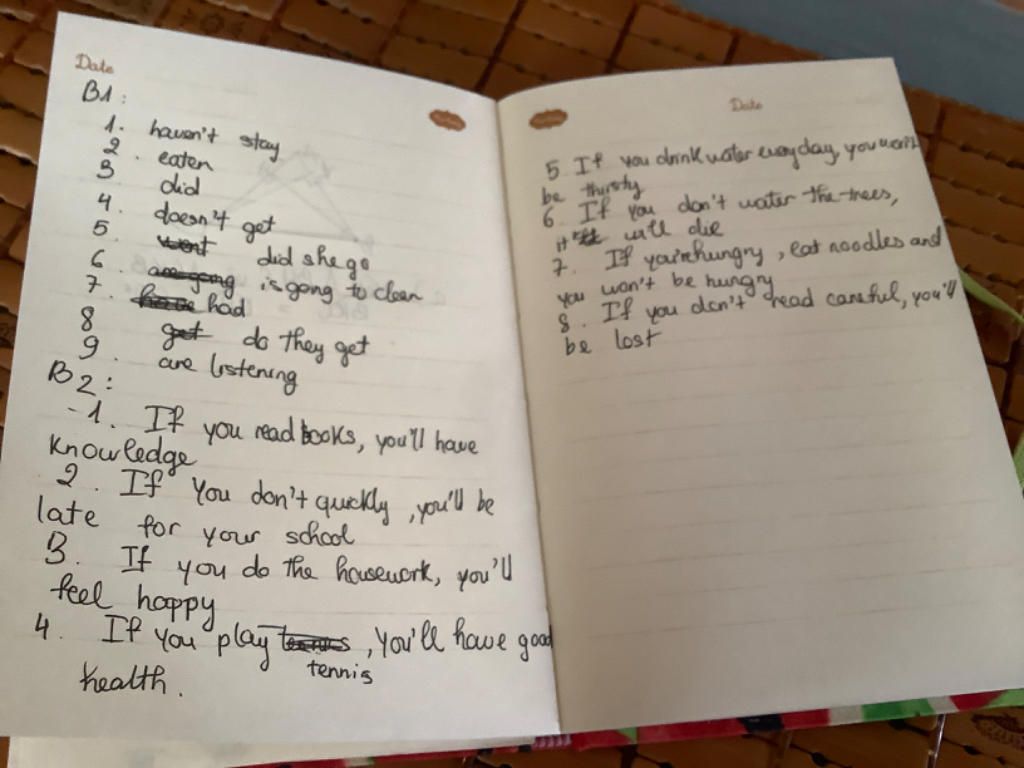 Date
B1:
1. haven't stay
2. eaten
3. did
4. doesn't get
5. went did she go
6. are going is going to clean
7. have had
8. get do they get
9. are listening
B2:
-1. If you read books, you'll have
knowledge
2. If you don't quickly, you'll be
late for your school
3. If you do the housework, you'll
feel happy
4. If you play tennis, you'll have good
tennis
health.
Date
5. If you drink water everyday, you won't
be thirsty
6. If you don't water the trees,
it will die
7. If you're hungry, eat noodles and
you won't be hungry
8. If you don't read careful, you'll
be lost